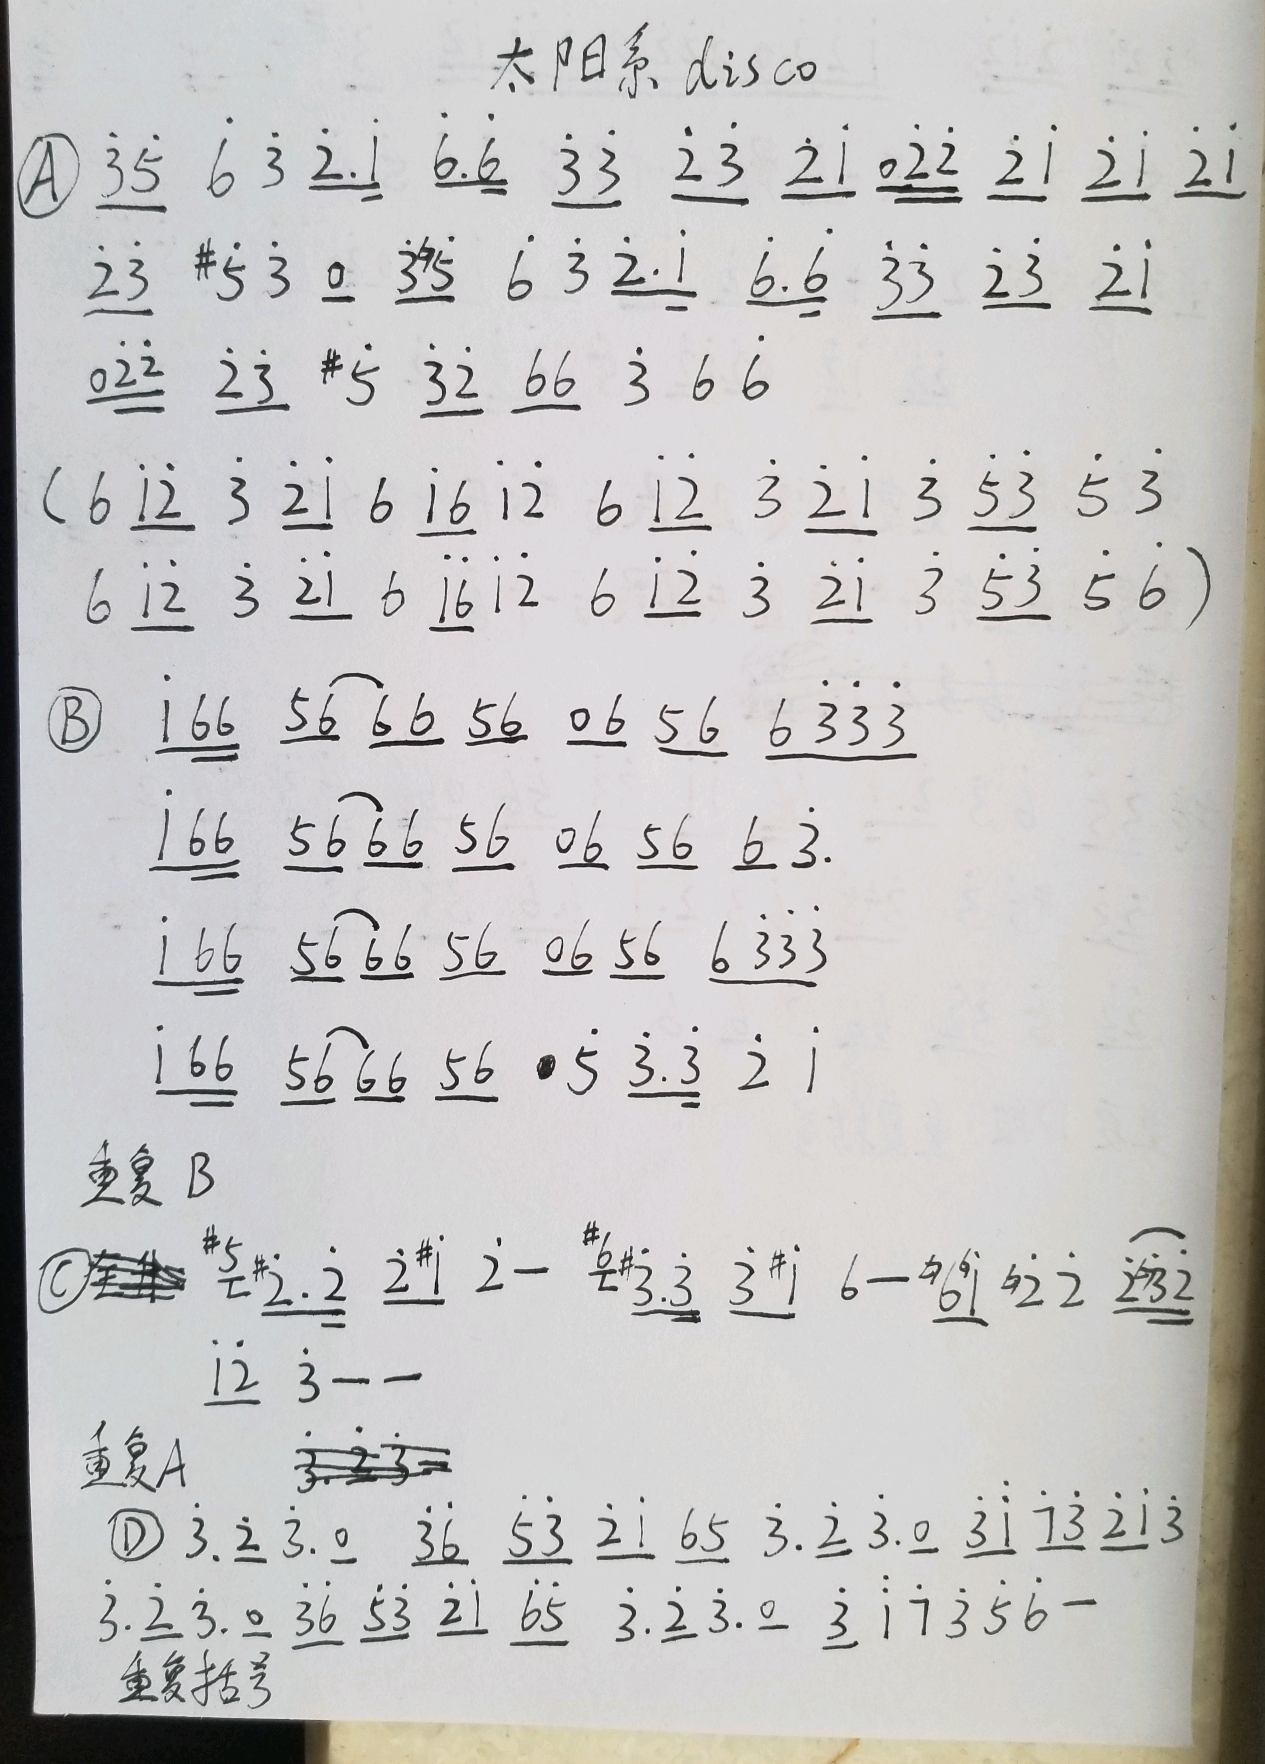 太阳系disco
Ⓐ 3̇5̇ 6̇ 3̇ 2̇.1̇ 6̇.6̇ 3̇3̇ 2̇3̇ 2̇1̇ 02̇2̇ 2̇1̇ 2̇1̇ 2̇1̇
2̇3̇ #5̇ 3̇ 0 3̇♮5̇ 6̇ 3̇ 2̇.1̇ 6̇.6̇ 3̇3̇ 2̇3̇ 2̇1̇
02̇2̇ 2̇3̇ #5̇ 3̇2̇ 66 3̇ 6 6̇
(6 1̇2̇ 3̇ 2̇1̇ 6 1̇6 1̇2̇ 6 1̇2̇ 3̇ 2̇1̇ 3̇ 5̇3̇ 5̇ 3̇
6 1̇2̇ 3̇ 2̇1̇ 6 1̇6̇ 1̇2̇ 6 1̇2̇ 3̇ 2̇1̇ 3̇ 5̇3̇ 5̇ 6̇)
Ⓑ 1̇66 56 66 56 06 56 63̇3̇3̇
1̇66 56 66 56 06 56 6 3̇.
1̇66 56 66 56 06 56 63̇3̇3̇
1̇66 56 66 56 5̇ 3̇.3̇ 2̇ 1̇
重复 B
Ⓒ #5 #2̇.2̇ 2̇#1̇ 2̇— #6 #3̇.3̇ 3̇#1̇ 6— ♮6♮1̇ ♮2̇ 2̇ 2̇♮3̇2̇
1̇2̇ 3̇——
重复A
Ⓓ 3̇.2̇ 3̇.0 3̇6̇ 5̇3̇ 2̇1̇ 65 3̇.2̇ 3̇.0 3̇1̇ 7̇3̇ 2̇1̇ 3̇
3̇.2̇ 3̇.0 3̇6̇ 5̇3̇ 2̇1̇ 6̇5̇ 3̇.2̇ 3̇.0 3̇ 1̇ 7̇ 3̇ 5̇ 6̇—
重复括号